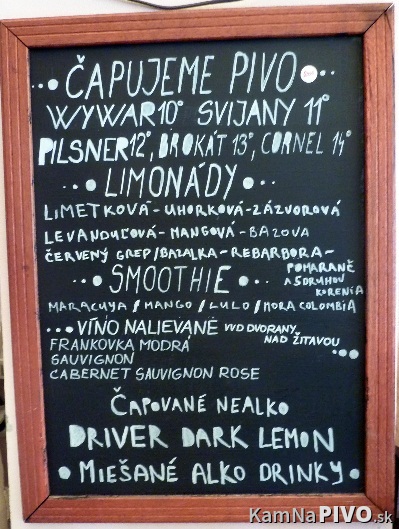 ČAPUJEME PIVO
WYWAR 10° SVIJANY 11°
PILSNER 12°, BROKÁT 13°, CORNEL 14°
LIMONÁDY
LIMETKOVÁ - UHORKOVÁ - ZÁZVOROVÁ
LEVANDUĽOVÁ - MANGOVÁ - BAZOVA
ČERVENÝ GREP/BAZALKA - REBARBORA -
POMARANČ
A 5 DRUHOV
KORENIA
SMOOTHIE
MARACUYA / MANGO / LULO / MORA COLOMBIA
VÍNO NALIEVANÉ VVD DVORANY
NAD ŽITAVOU
FRANKOVKA MODRÁ
SAUVIGNON
CABERNET SAUVIGNON ROSE
ČAPOVANÉ NEALKO
DRIVER DARK LEMON
MIEŠANÉ ALKO DRINKY
KamNaPIVO.sk